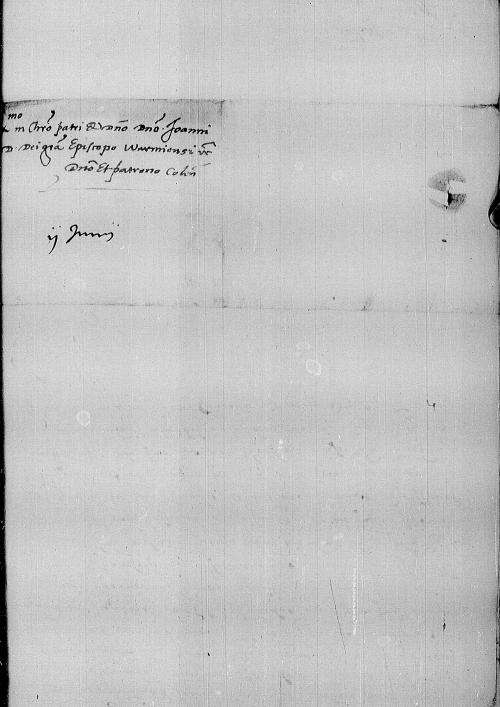 mo
in Chro patri et Dno Dno Joanni
D. Dei gra Episcopo Warmiensi
Dno Et patrono Coln
ij Junij